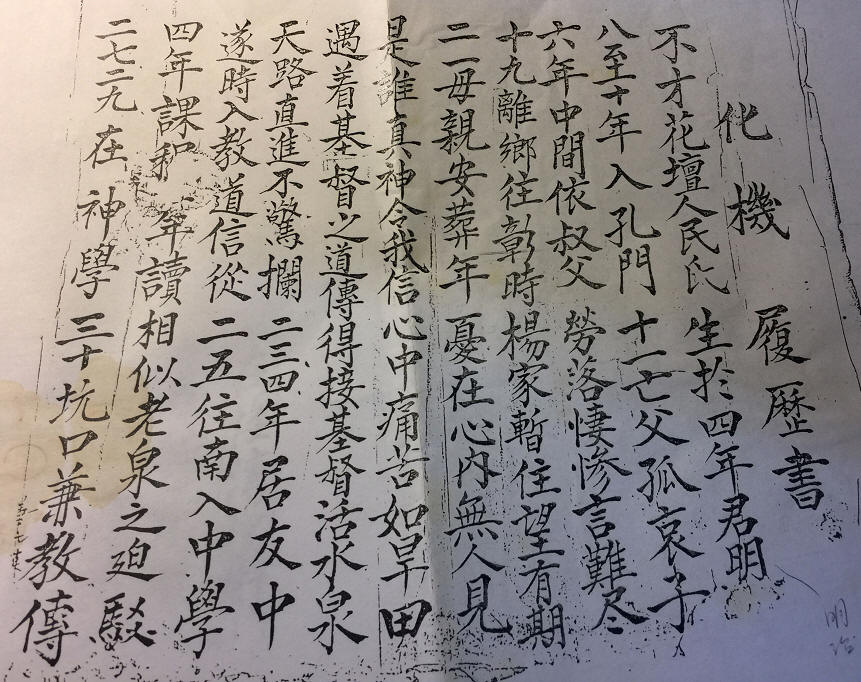 化機 履歷書
不才花壇人民氏 生於四年君明
八至十年入孔門 十一七父孤哀子
六年中間依叔父 勞落悽慘言難尽
十九離鄉往彰時 楊家暫住望有期
二一母親安葬年 憂在心內無人見
是誰真神令我信 心中痛苦如旱田
遇着基督之道傳 得接基督活水泉
天路直進不驚攔 二三四年居友中
遂時入教道信從 二五往南入中學
四年課和 年讀 相似老泉之迫駁
二七二九在神學 三十坑口兼教傳
明治